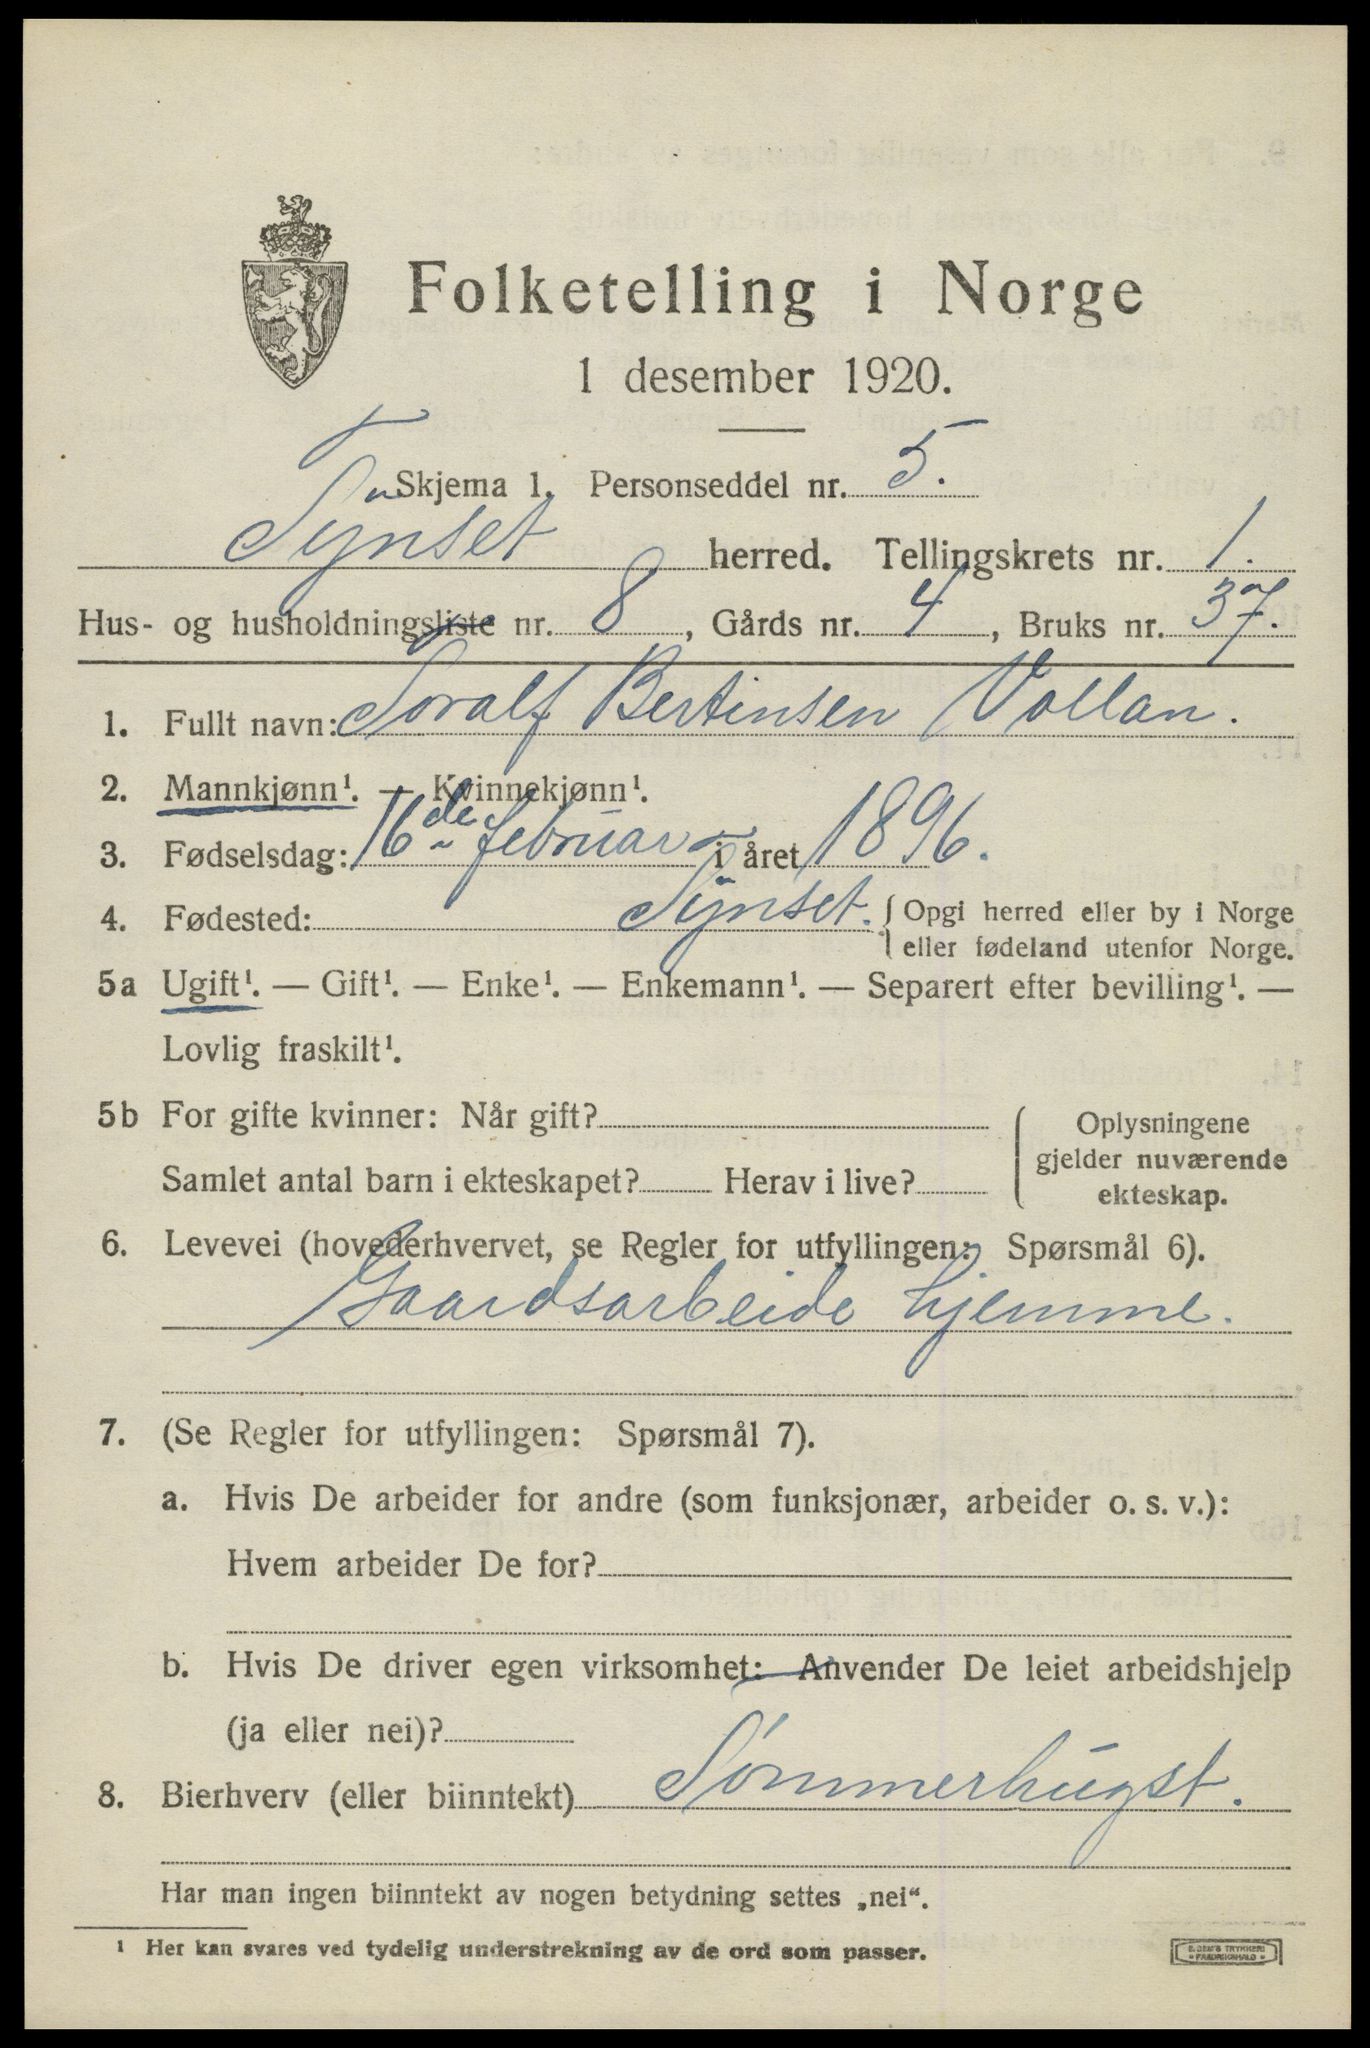 Folketelling i Norge
1 desember 1920.
Skjema 1. Personseddel nr. 5.
Tynset herred. Tellingskrets nr. 1.
Hus- og husholdningsliste nr. 8, Gårds nr. 4, Bruks nr. 37.
1. Fullt navn: Toralf Bertinsen Vollan.
2. Mannkjønn¹. — Kvinnekjønn¹.
3. Fødselsdag: 16de februar i året 1896.
4. Fødested: Tynset. { Opgi herred eller by i Norge
eller fødeland utenfor Norge.
5a Ugift¹. — Gift¹. — Enke¹. — Enkemann¹. — Separert efter bevilling¹. —
Lovlig fraskilt¹.
5b For gifte kvinner: Når gift?
Samlet antal barn i ekteskapet? Herav i live?
Oplysningene
gjelder nuværende
ekteskap.
6. Levevei (hovederhvervet, se Regler for utfyllingen: Spørsmål 6).
Gaardsarbeide hjemme.
7. (Se Regler for utfyllingen: Spørsmål 7).
a. Hvis De arbeider for andre (som funksjonær, arbeider o. s. v.):
Hvem arbeider De for?
b. Hvis De driver egen virksomhet: Anvender De leiet arbeidshjelp
(ja eller nei)?
8. Bierhverv (eller biinntekt) Tømmerhugst.
Har man ingen biinntekt av nogen betydning settes „nei“.
¹ Her kan svares ved tydelig understrekning av de ord som passer.